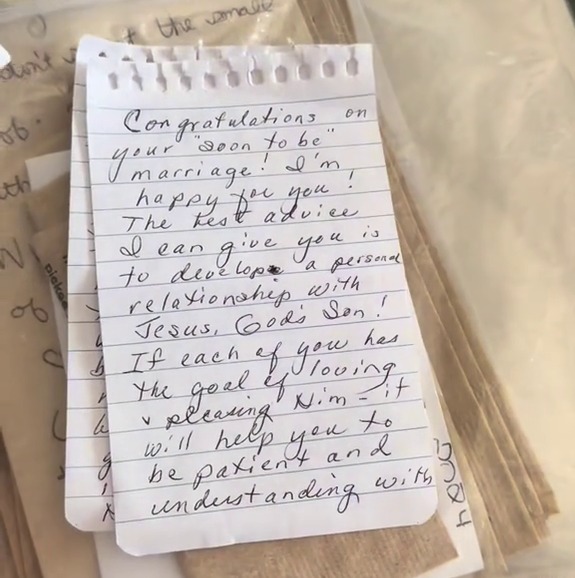 Congratulations on
your "soon to be"
marriage! I'm
happy for you!
The best advice
I can give you is
to develop a personal
relationship with
Jesus, God's Son!
If each of you has
the goal of loving
+ pleasing Him - it
will help you to
be patient and
understanding with
don't
the small
of